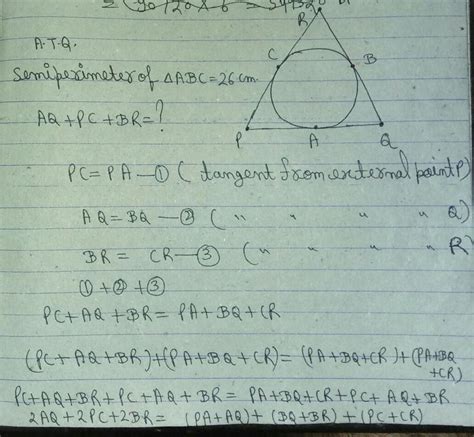 = (90/20 × 6 =
R
A.T.Q.
Semiperimeter of △ABC = 26 cm.
C
B
AQ + PC + BR = ?
P
A
Q
PC = PA — ① ( tangent from external point P)
AQ = BQ — ② ( " " " " Q)
BR = CR — ③ ( " " " " R)
① + ② + ③
PC + AQ + BR = PA + BQ + CR
(PC + AQ + BR) + (PA + BQ + CR) = (PA + BQ + CR) + (PA + BQ
+ CR)
PC + AQ + BR + PC + AQ + BR = PA + BQ + CR + PC + AQ + BR
2AQ + 2PC + 2BR = (PA + AQ) + (BQ + BR) + (PC + CR)